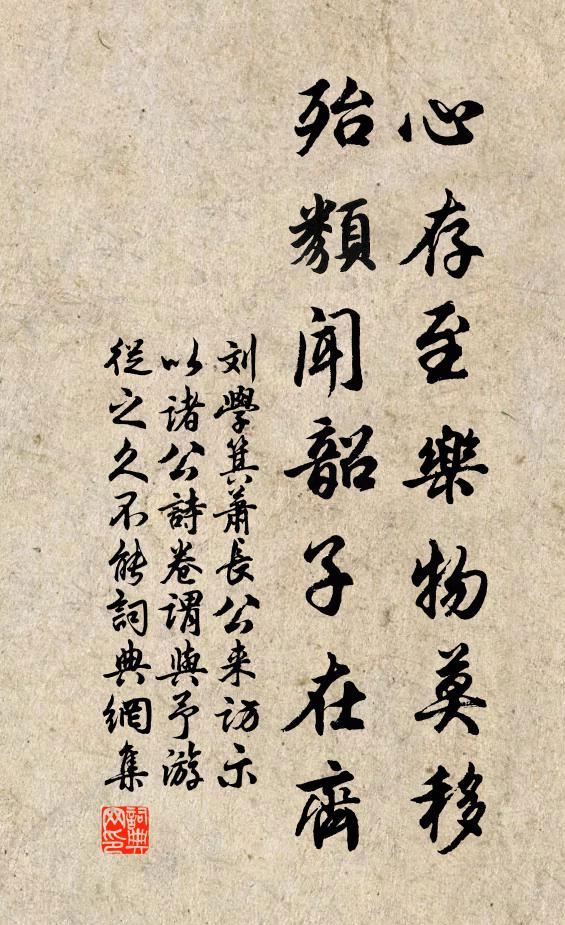 心存至樂物莫移
殆類聞韶子在齊
刘學箕蕭長公来訪示
以諸公詩卷谓與予游
從之久不能詞典網集
詞典网印